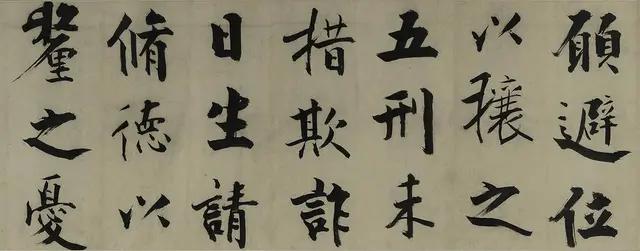 願避位
以穰之
五刑未
措欺詐
日生請
脩德以
釐之憂